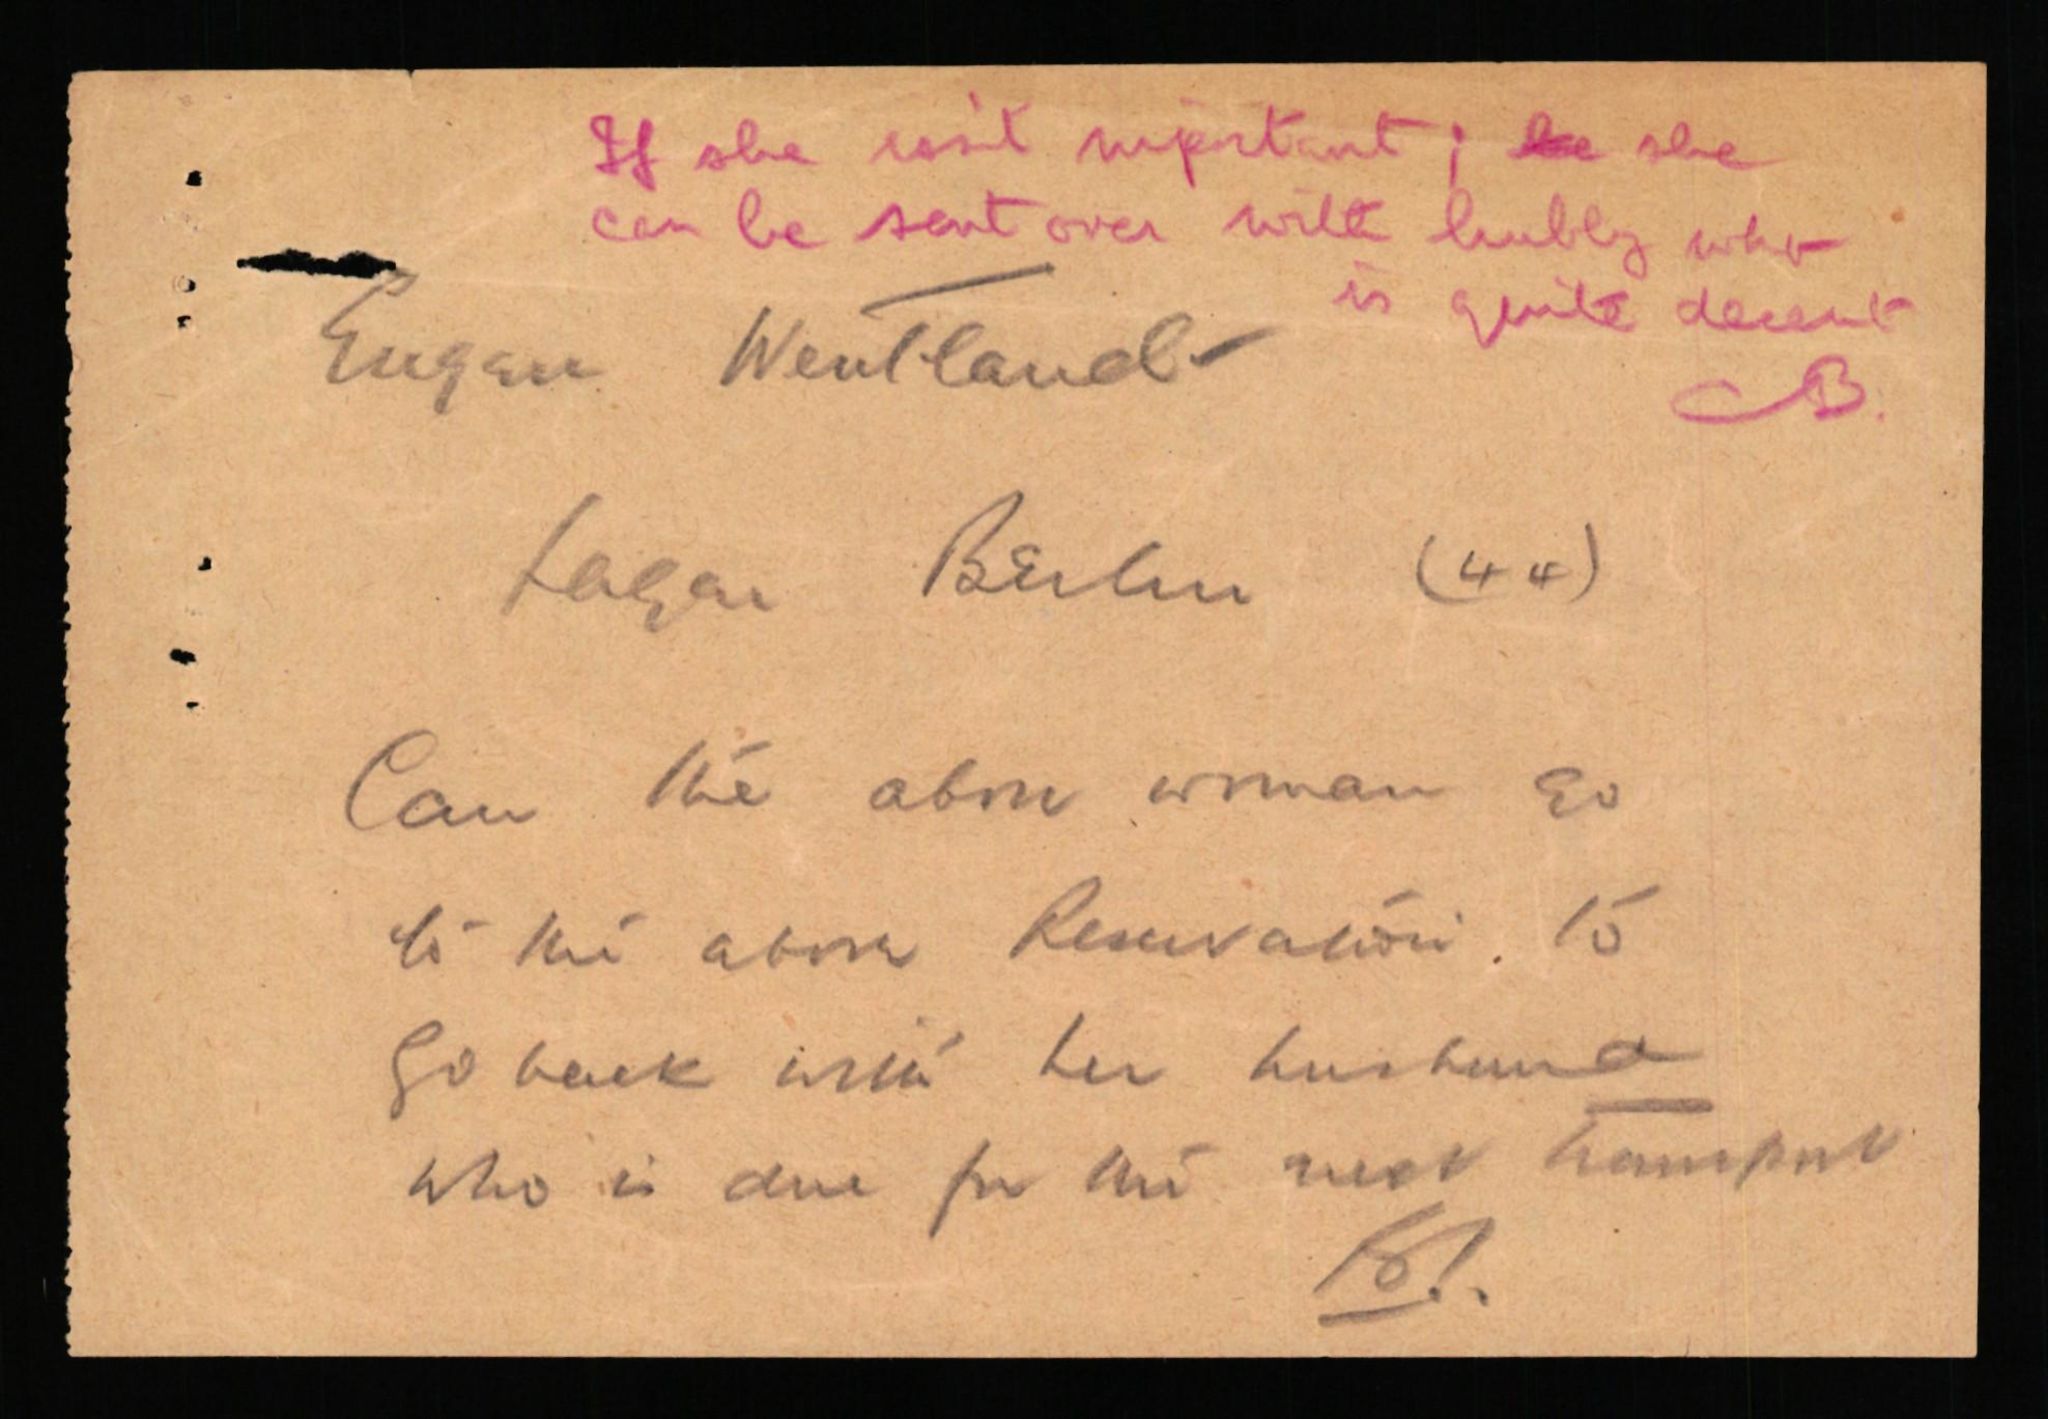 If she isn't important ; he she
can be sent over with hubby who
is quite decent
B.
Eugen Wentland
Lager Berlin (44)
Can the above woman go
to the above Reservation. to
go back with her husband
who is due for the next transport